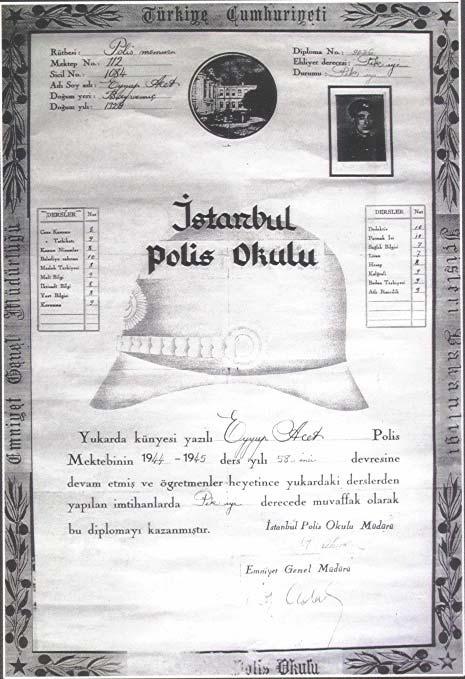 Türkiye Cumhuriyeti
Rütbesi: Polis memuru
Mektep No.: 112
Sicil No.: 1084
Adı Soy adı: Eyyup Acet
Doğum yeri:
Doğum yılı:
Diploma No.:
Ehliyet derecesi: Pek iyi
Durumu: Pek iyi
İstanbul
Polis Okulu
DERSLER Not
Ceza Kanunu 6
" Tatbikatı 9
Kanun Nizamlar 8
Belediye zabıtası 10
Meslek Terbiyesi 8
Mali Bilgi 9
İktisadi Bilgi 6
Yurt Bilgisi 8
Korunma 9
DERSLER Not
Dedektiv 10
Parmak İzi 10
Sağlık Bilgisi 7
Lisan 7
Hesap 8
Kaligrafi 9
Beden Terbiyesi 9
Atlı Binicilik 9
Emniyet Genel Müdürlüğü
İçişleri Bakanlığı
Yukarda künyesi yazılı Eyyup Acet Polis
Mektebinin 1944-1945 ders yılı 58 inci devresine
devam etmiş ve öğretmenler heyetince yukardaki derslerden
yapılan imtihanlarda Pek iyi derecede muvaffak olarak
bu diplomayı kazanmıştır.
İstanbul Polis Okulu Müdürü
Emniyet Genel Müdürü
Polis Okulu